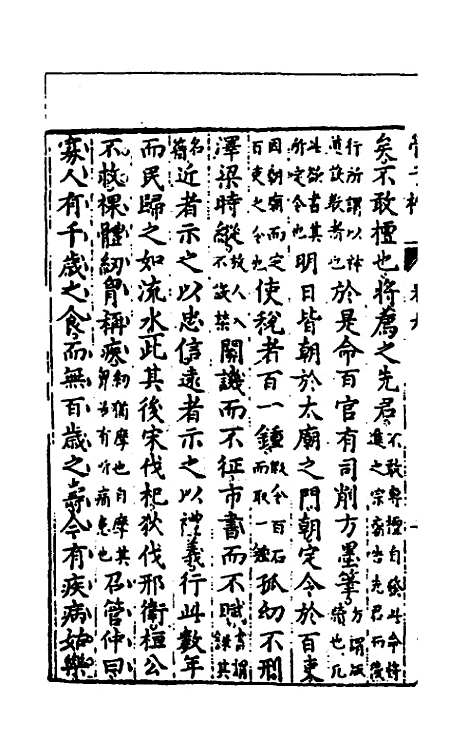 矣不敢擅也將薦之先君不敢專擅自發此令將進之宗廟告先君而後
行所謂以神道設教者也於是命百官有司削方墨筆方謂版牘也凡
此欲書其所定令也明日皆朝於太廟之門朝定令於百吏
因朝廟而定百吏之令也使稅者百一鍾假令百石而取一鍾孤幼不刑
澤梁時縱放人入不設禁關譏而不征市書而不賦書謂錄其
名籍近者示之以忠信遠者示之以禮義行此數年
而民歸之如流水此其後宋伐杞狄伐邢衞桓公
不救裸體紉胷稱疾紉猶摩也自摩其胷若有所痛患也召管仲曰
寡人有千歲之食而無百歲之壽今有疾病姑樂